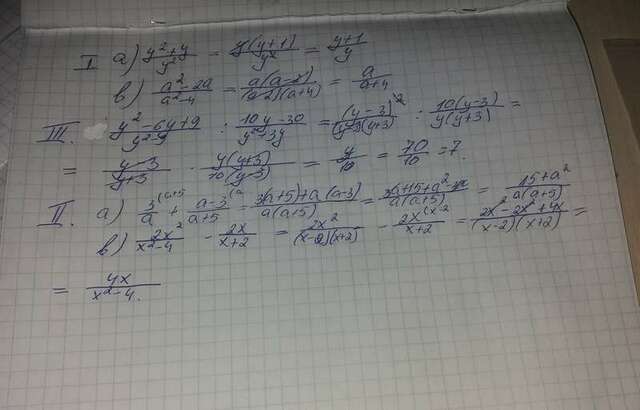 I а) (y²+y)/y² = y(y+1)/y² = (y+1)/y
в) (a²-2a)/(a²-4) = a(a-2)/((a-2)(a+4)) = a/(a+4)
III. (y²-6y+9)/(y²-9) : (10y-30)/(y²+3y) = (y-3)²/((y-3)(y+3)) : 10(y-3)/(y(y+3)) =
= (y-3)/(y+3) · y(y+3)/(10(y-3)) = y/10 = 70/10 = 7.
II. а) 3/a + (a-3)/(a+5) = (3(a+5)+a(a-3))/(a(a+5)) = (3a+15+a²-3a)/(a(a+5)) = (15+a²)/(a(a+5))
в) 2x²/(x²-4) - 2x/(x+2) = 2x²/((x-2)(x+2)) - 2x/(x+2) = (2x²-2x²+4x)/((x-2)(x+2)) =
= 4x/(x²-4).